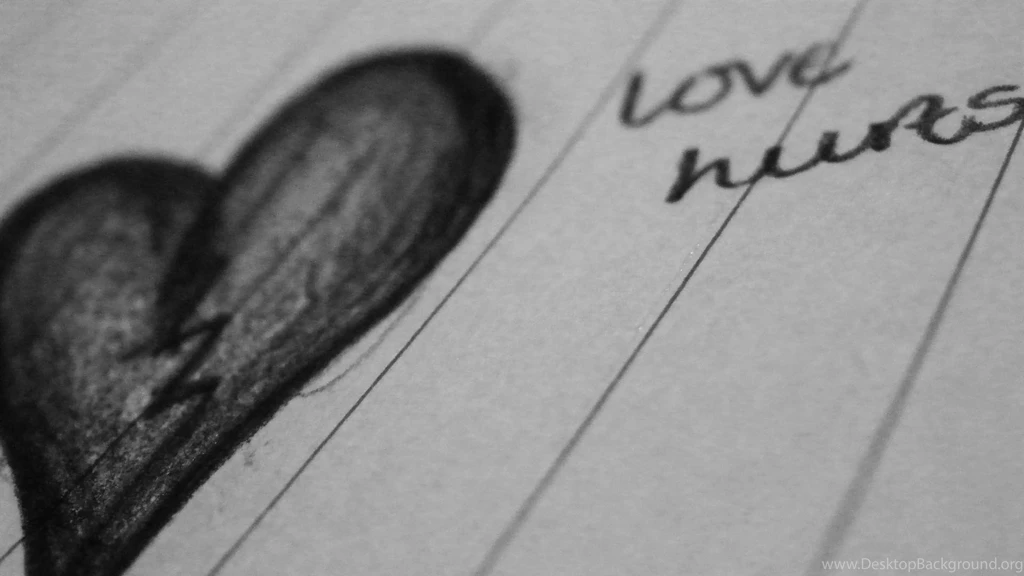 Love
hurts
www.DesktopBackground.org